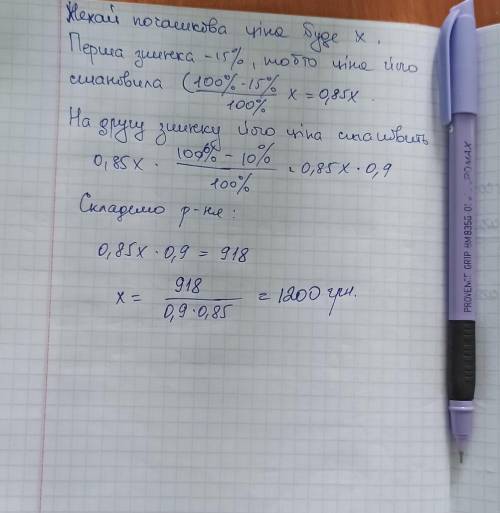 Нехай початкова ціна буде x.
Перша знижка - 15%, тобто ціна його
становила (100% - 15%
100%
x = 0,85x
На другу знижку його ціна становить
0,85x · 100% - 10%
100%
= 0,85x · 0,9
Складемо р-ня:
0,85x · 0,9 = 918
x = 918
0,9 · 0,85
= 1200 грн.
PROVENCE GRIP HM8356-0
PROMAX